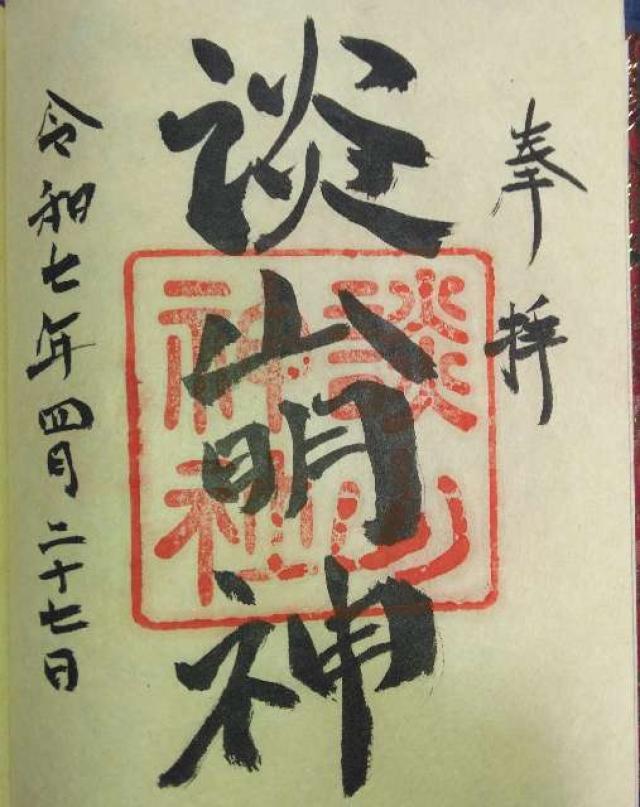 奉拝
談山明神
談山神社
令和七年四月二十七日